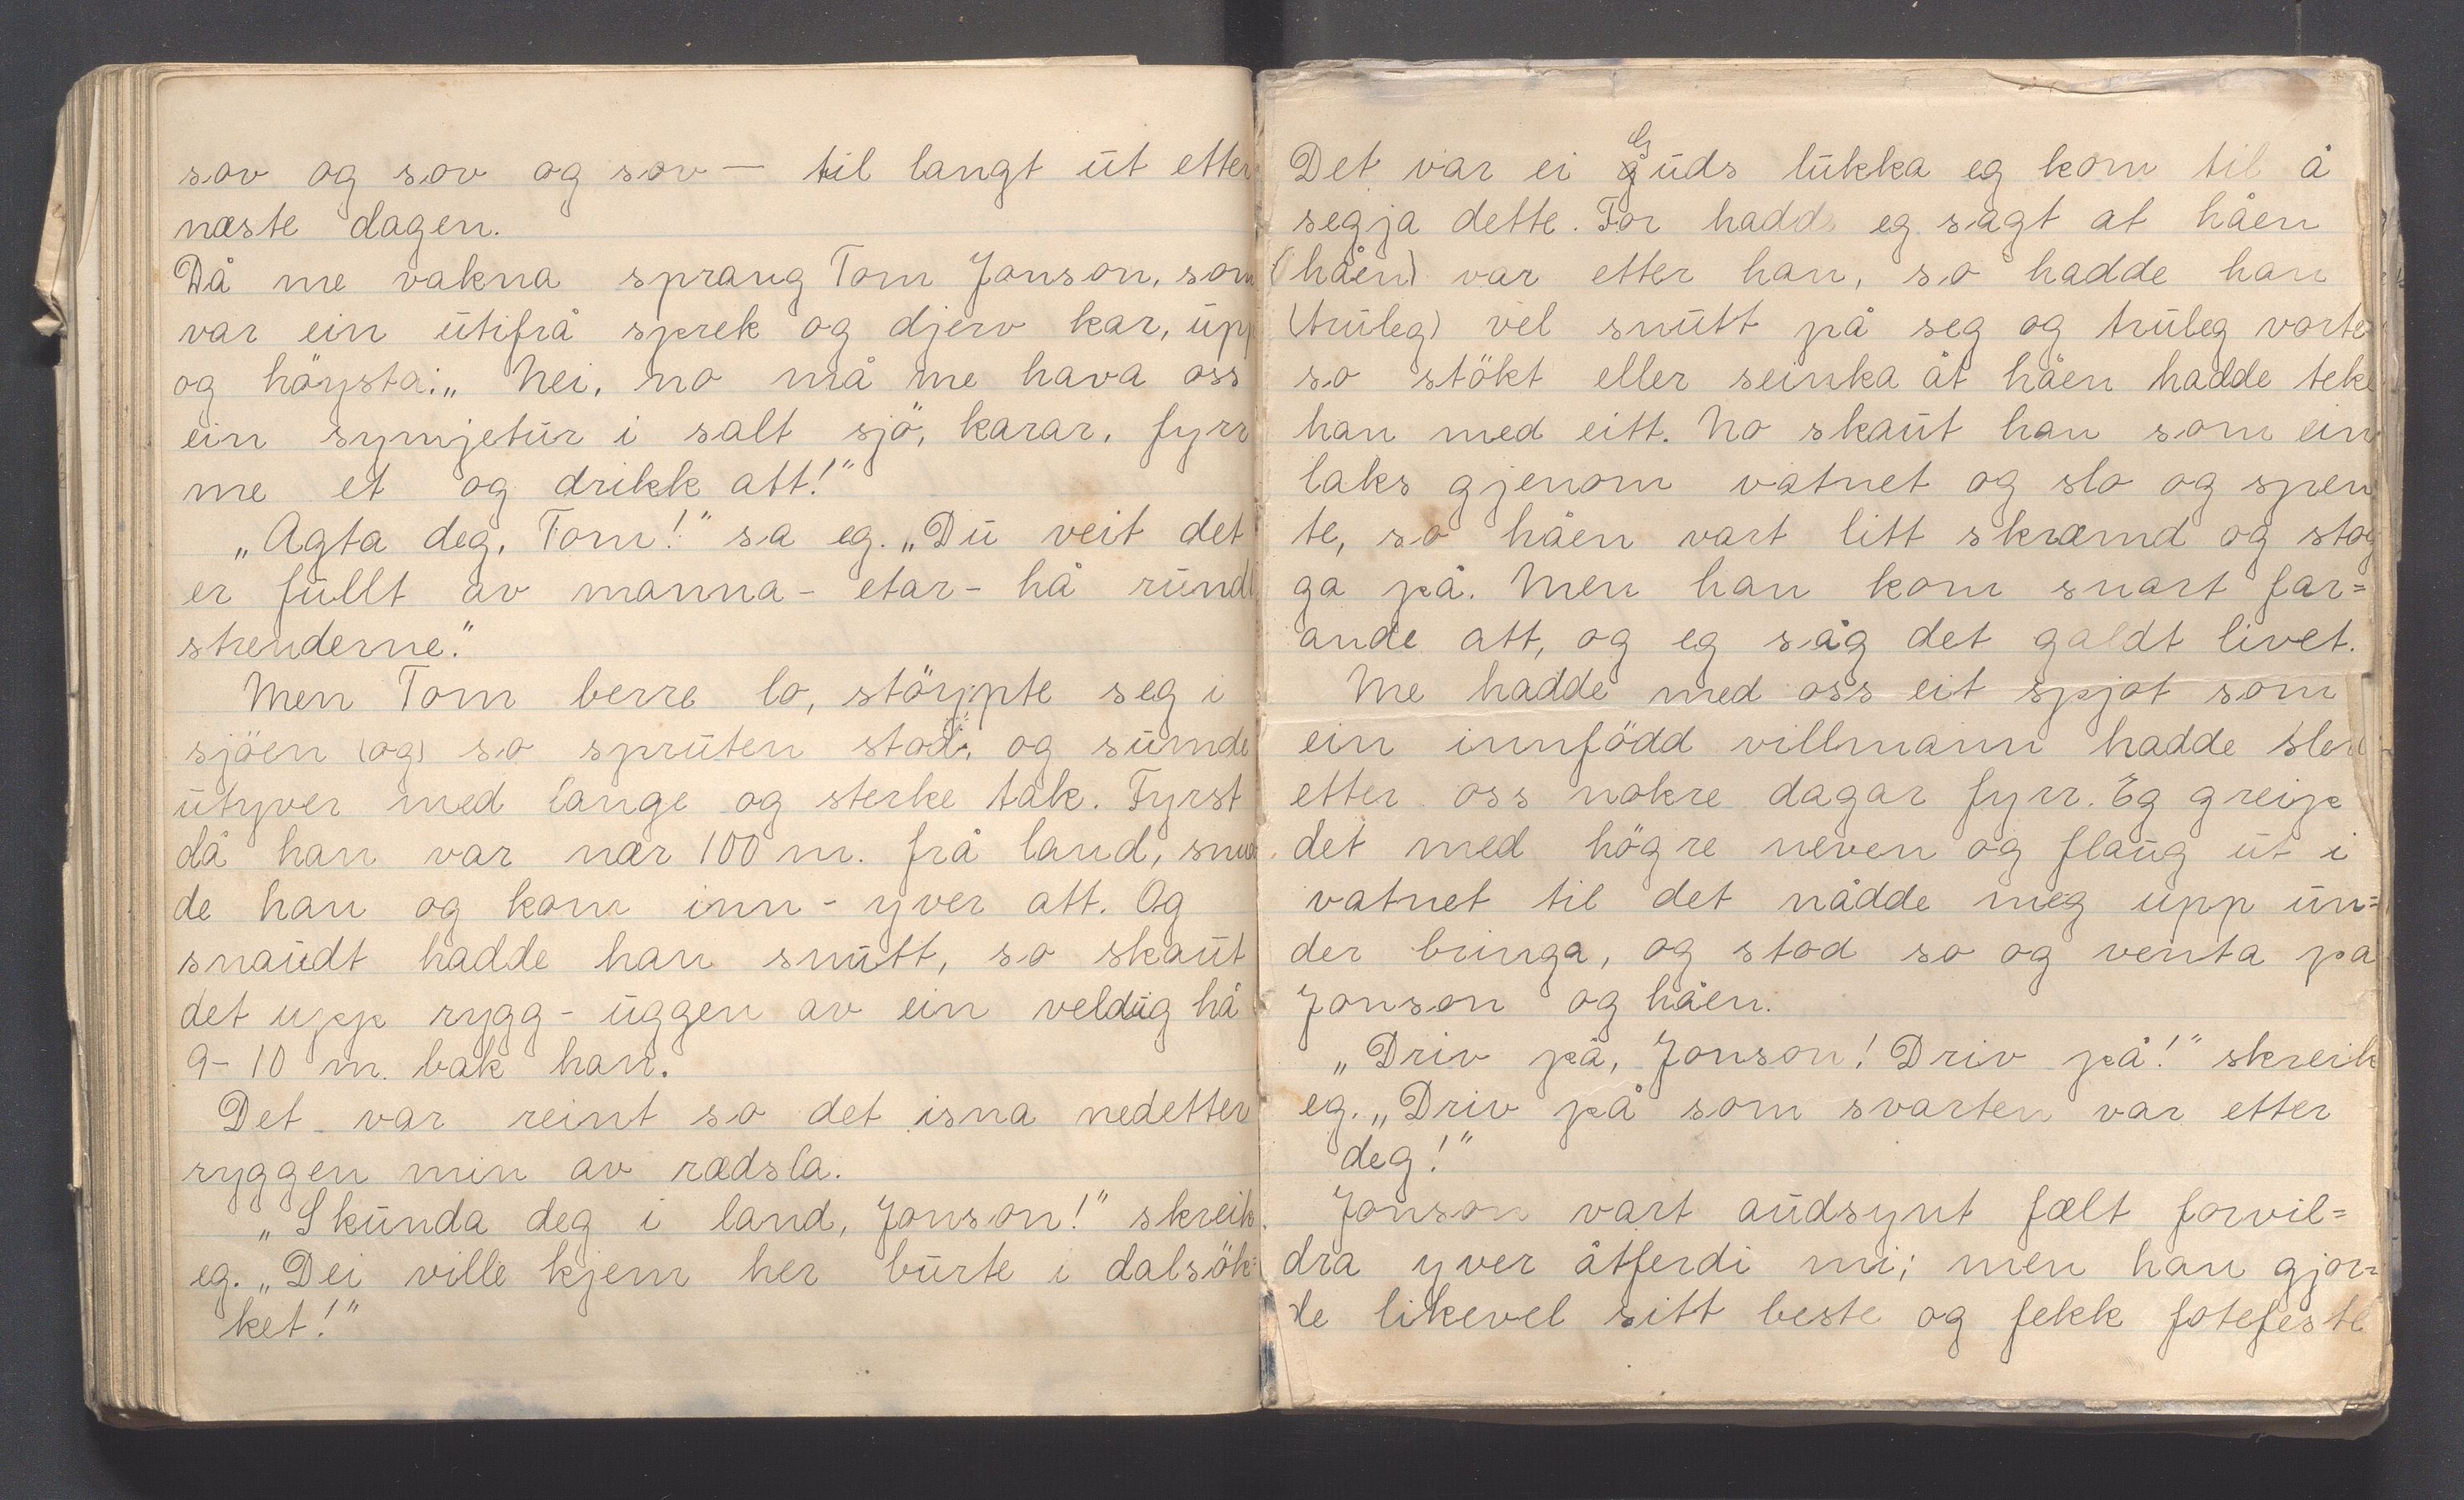 sov og sov og sov — til langt út etter
næste dagen.
Då me vakna sprang Tom Jonson, som
var ein útifrå sprek og djerv kar, úpp
og höysta: „Nei, no må me hava oss
ein symjetúr i salt sjö, karar, fyrr
me et og drikk att!"
„Agta deg, Tom!" sa eg. „Dú veit det
er fúllt av manna-etar-hå rúndt
strenderne."
Men Tom berre lo, störypte seg i
sjöen (og) so sprúten stod, og súmde
útyver med lange og sterke tak. Fyrst
då han var nær 100 m. frå land, snúd
de han og kom inn-yver att. Og
snaúdt hadde han snútt, so skaút
det upp rygg-úggen av ein veldúg hå
9-10 m. bak han.
Det var reint so det isna nedetter
ryggen min av rædsla.
„Skúnda deg i land, Jonson!" skreik
eg. „Dei ville kjem her búrte i dalsök-
ket!"
Det var ei Gúds lúkka eg kom til å
segja dette. For hadde eg sagt at håen
(håen) var etter han, so hadde han
(trúleg) vel snútt på seg og trúleg vorte
so stökt eller seinka åt håen hadde teke
han med eitt. No skaút han som ein
laks gjenom vatnet og slo og spen
te, so håen vart litt skræmd og stog
ga på. Men han kom snart far=
ande att, og eg såg det galdt livet.
Me hadde med oss eit spjot som
ein innfödd villmann hadde slen
etter oss nokre dagar fyrr. Eg greip
det med högre neven og flaúg út i
vatnet til det nådde meg upp ún=
der bringa, og stod so og venta på
Jonson og håen.
„Driv på, Jonson! Driv på!" skreik
eg. „Driv på som svarten var etter
deg!"
Jonson vart aúdsynt fælt forvil=
dra yver åtferdi mi; men han gjor=
de likevel sitt beste og fekk fotefeste